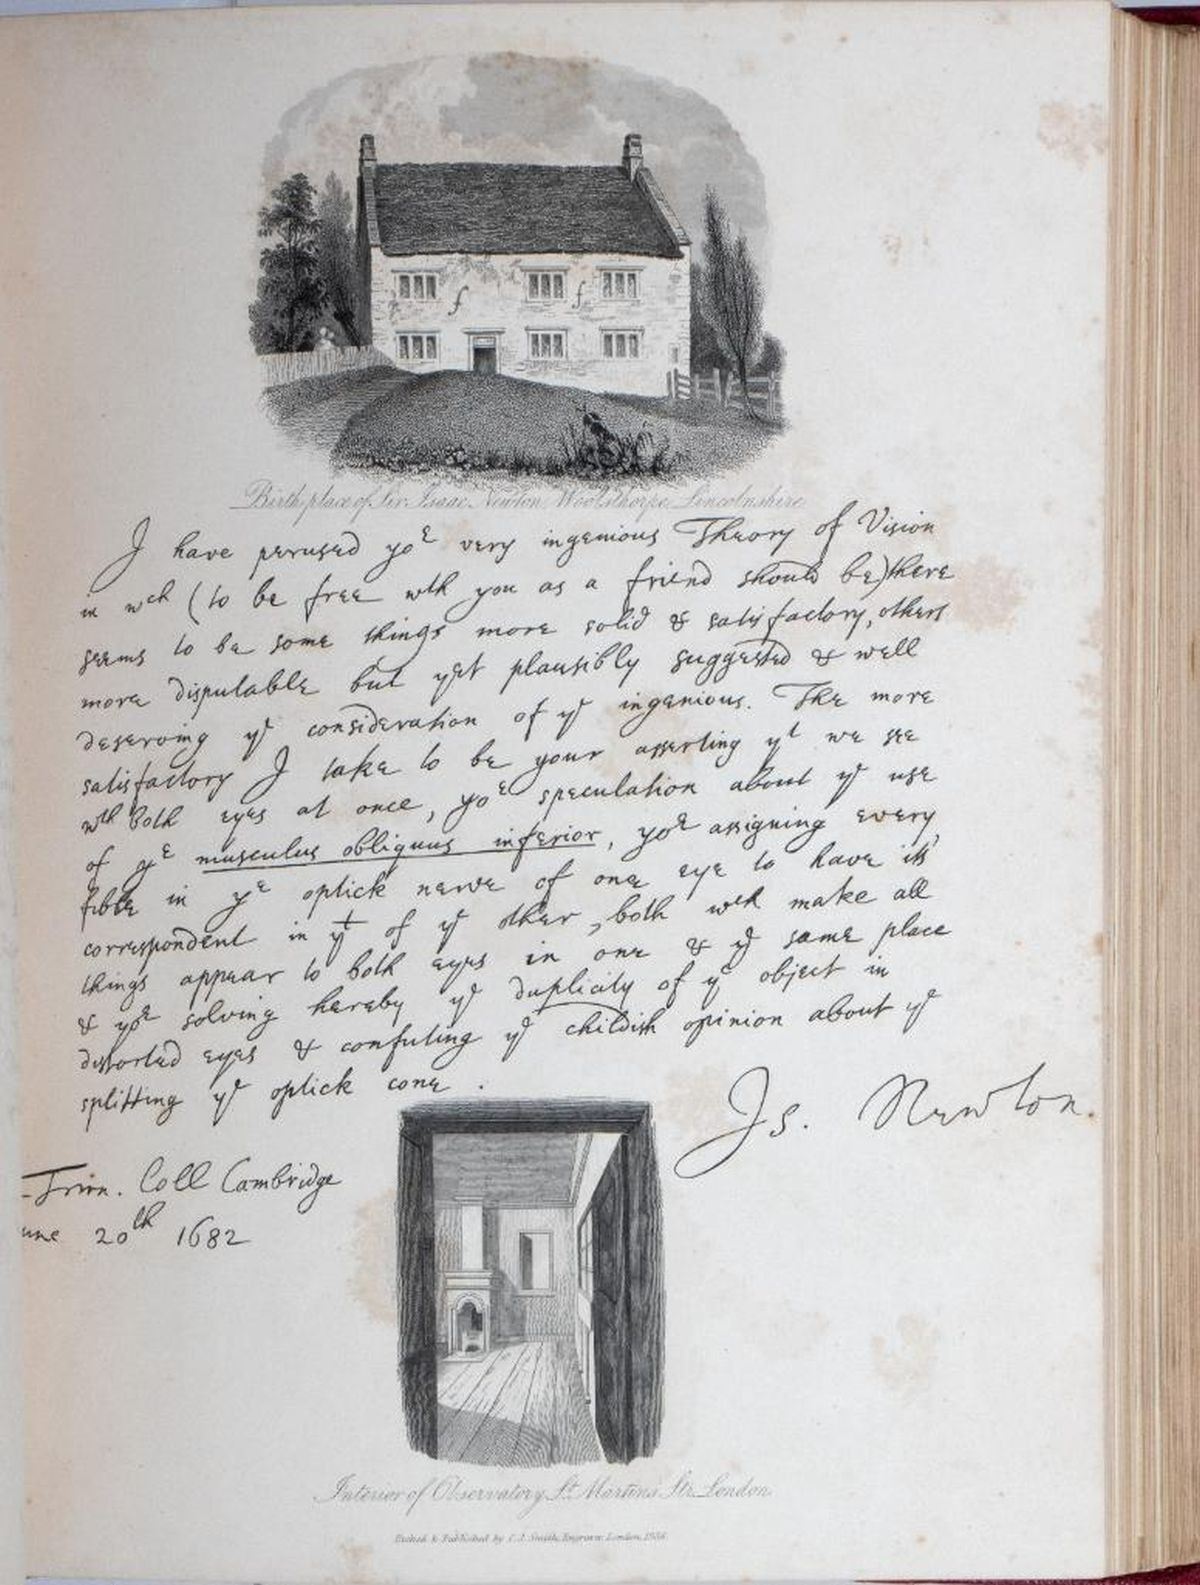 Birthplace of Sir Isaac Newton Woolsthorpe Lincolnshire
I have perused yoᵉ very ingenious Theory of Vision
in wᶜʰ (to be free wᵗʰ you as a friend should be) there
seems to be some things more solid & satisfactory, others
more disputable but yet plausibly suggested & well
deserving yᵉ consideration of yᵉ ingenious. The more
satisfactory I take to be your asserting yᵗ we see
wᵗʰ both eyes at once, yoᵉ speculation about yᵉ use
of yᵉ musculus obliquus inferior, yoᵉ assigning every
fibre in yᵉ optick nerve of one eye to have its
correspondent in yᵗ of yᵉ other, both wᶜʰ make all
things appear to both eyes in one & yᵉ same place
& yoᵉ solving hereby yᵉ duplicity of yᵉ object in
distorted eyes & confuting yᵉ childish opinion about yᵉ
splitting yᵉ optick cone.
Is. Newton.
Trin. Coll Cambridge
une 20ᵗʰ 1682
Interior of Observatory St. Martins Str. London
Etched & Published by C. J. Smith, Engraver London